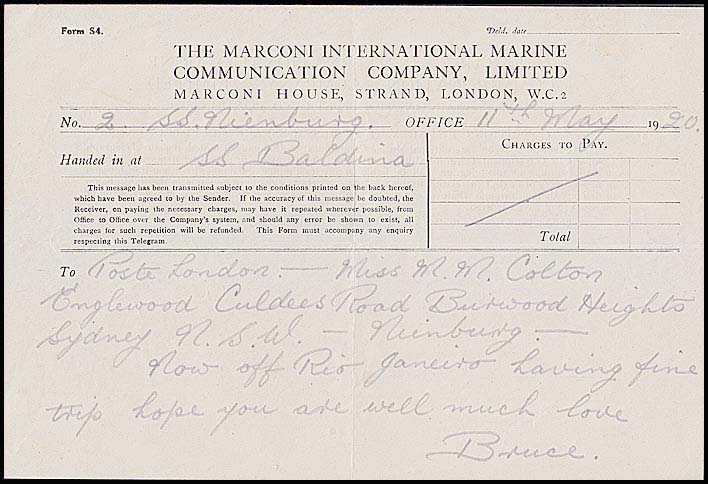 Form S4.
Deld. date
THE MARCONI INTERNATIONAL MARINE
COMMUNICATION COMPANY, LIMITED
MARCONI HOUSE, STRAND, LONDON, W.C.2
No. 2. SS. Nienburg. OFFICE 11th May 1920.
Handed in at SS Baldina
CHARGES TO PAY.
This message has been transmitted subject to the conditions printed on the back hereof,
which have been agreed to by the Sender. If the accuracy of this message be doubted, the
Receiver, on paying the necessary charges, may have it repeated wherever possible, from
Office to Office over the Company's system, and should any error be shown to exist, all
charges for such repetition will be refunded. This Form must accompany any enquiry
respecting this Telegram
Total
To Poste London. — Miss M. M. Colton
Englewood Culdees Road Burwood Heights
Sydney N. S. W. — Nienburg. —
Now off Rio Janeiro having fine
trip hope you are well much love
Bruce.